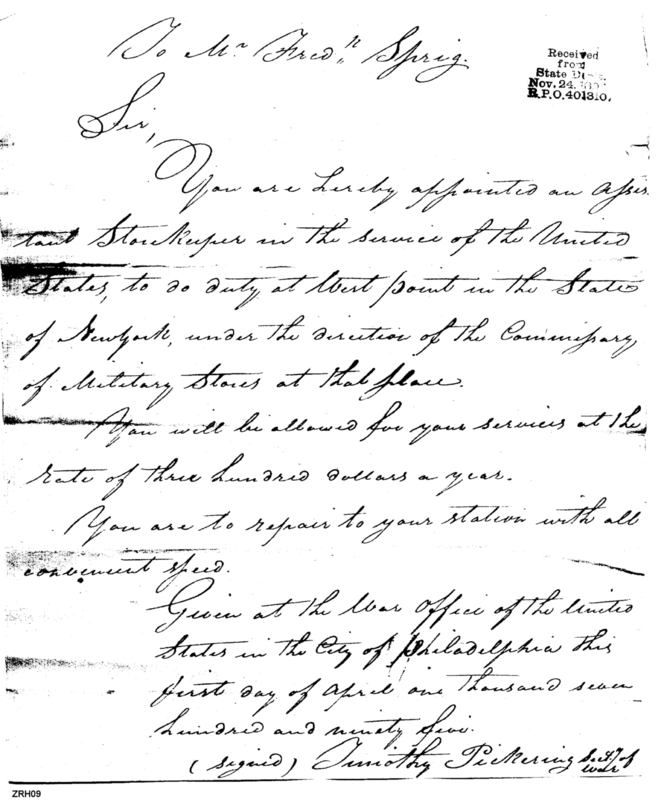 To Mr. Fred.k Sprig.
Received
from
State
Nov. 24,
R.P.O. 401310.
Sir,
You are hereby appointed an Assis
tant Storekeeper in the service of the United
States, to do duty at West point in the State
of NewYork, under the direction of the Commissary
of Military Stores at that place.
You will be allowed for your services at the
rate of three hundred dollars a year.
You are to repair to your station with all
convenient speed.
Given at the War Office of the United
States in the City of Philadelphia this
first day of April one thousand seven
hundred and ninety five.
(signed) Timothy Pickering Secty of
War
ZRH09